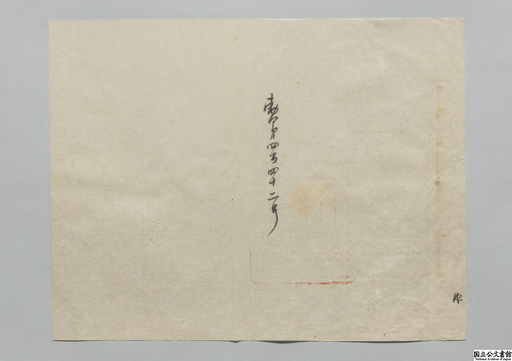 勅令第四百四十二号
国立公文書館
National Archives of Japan